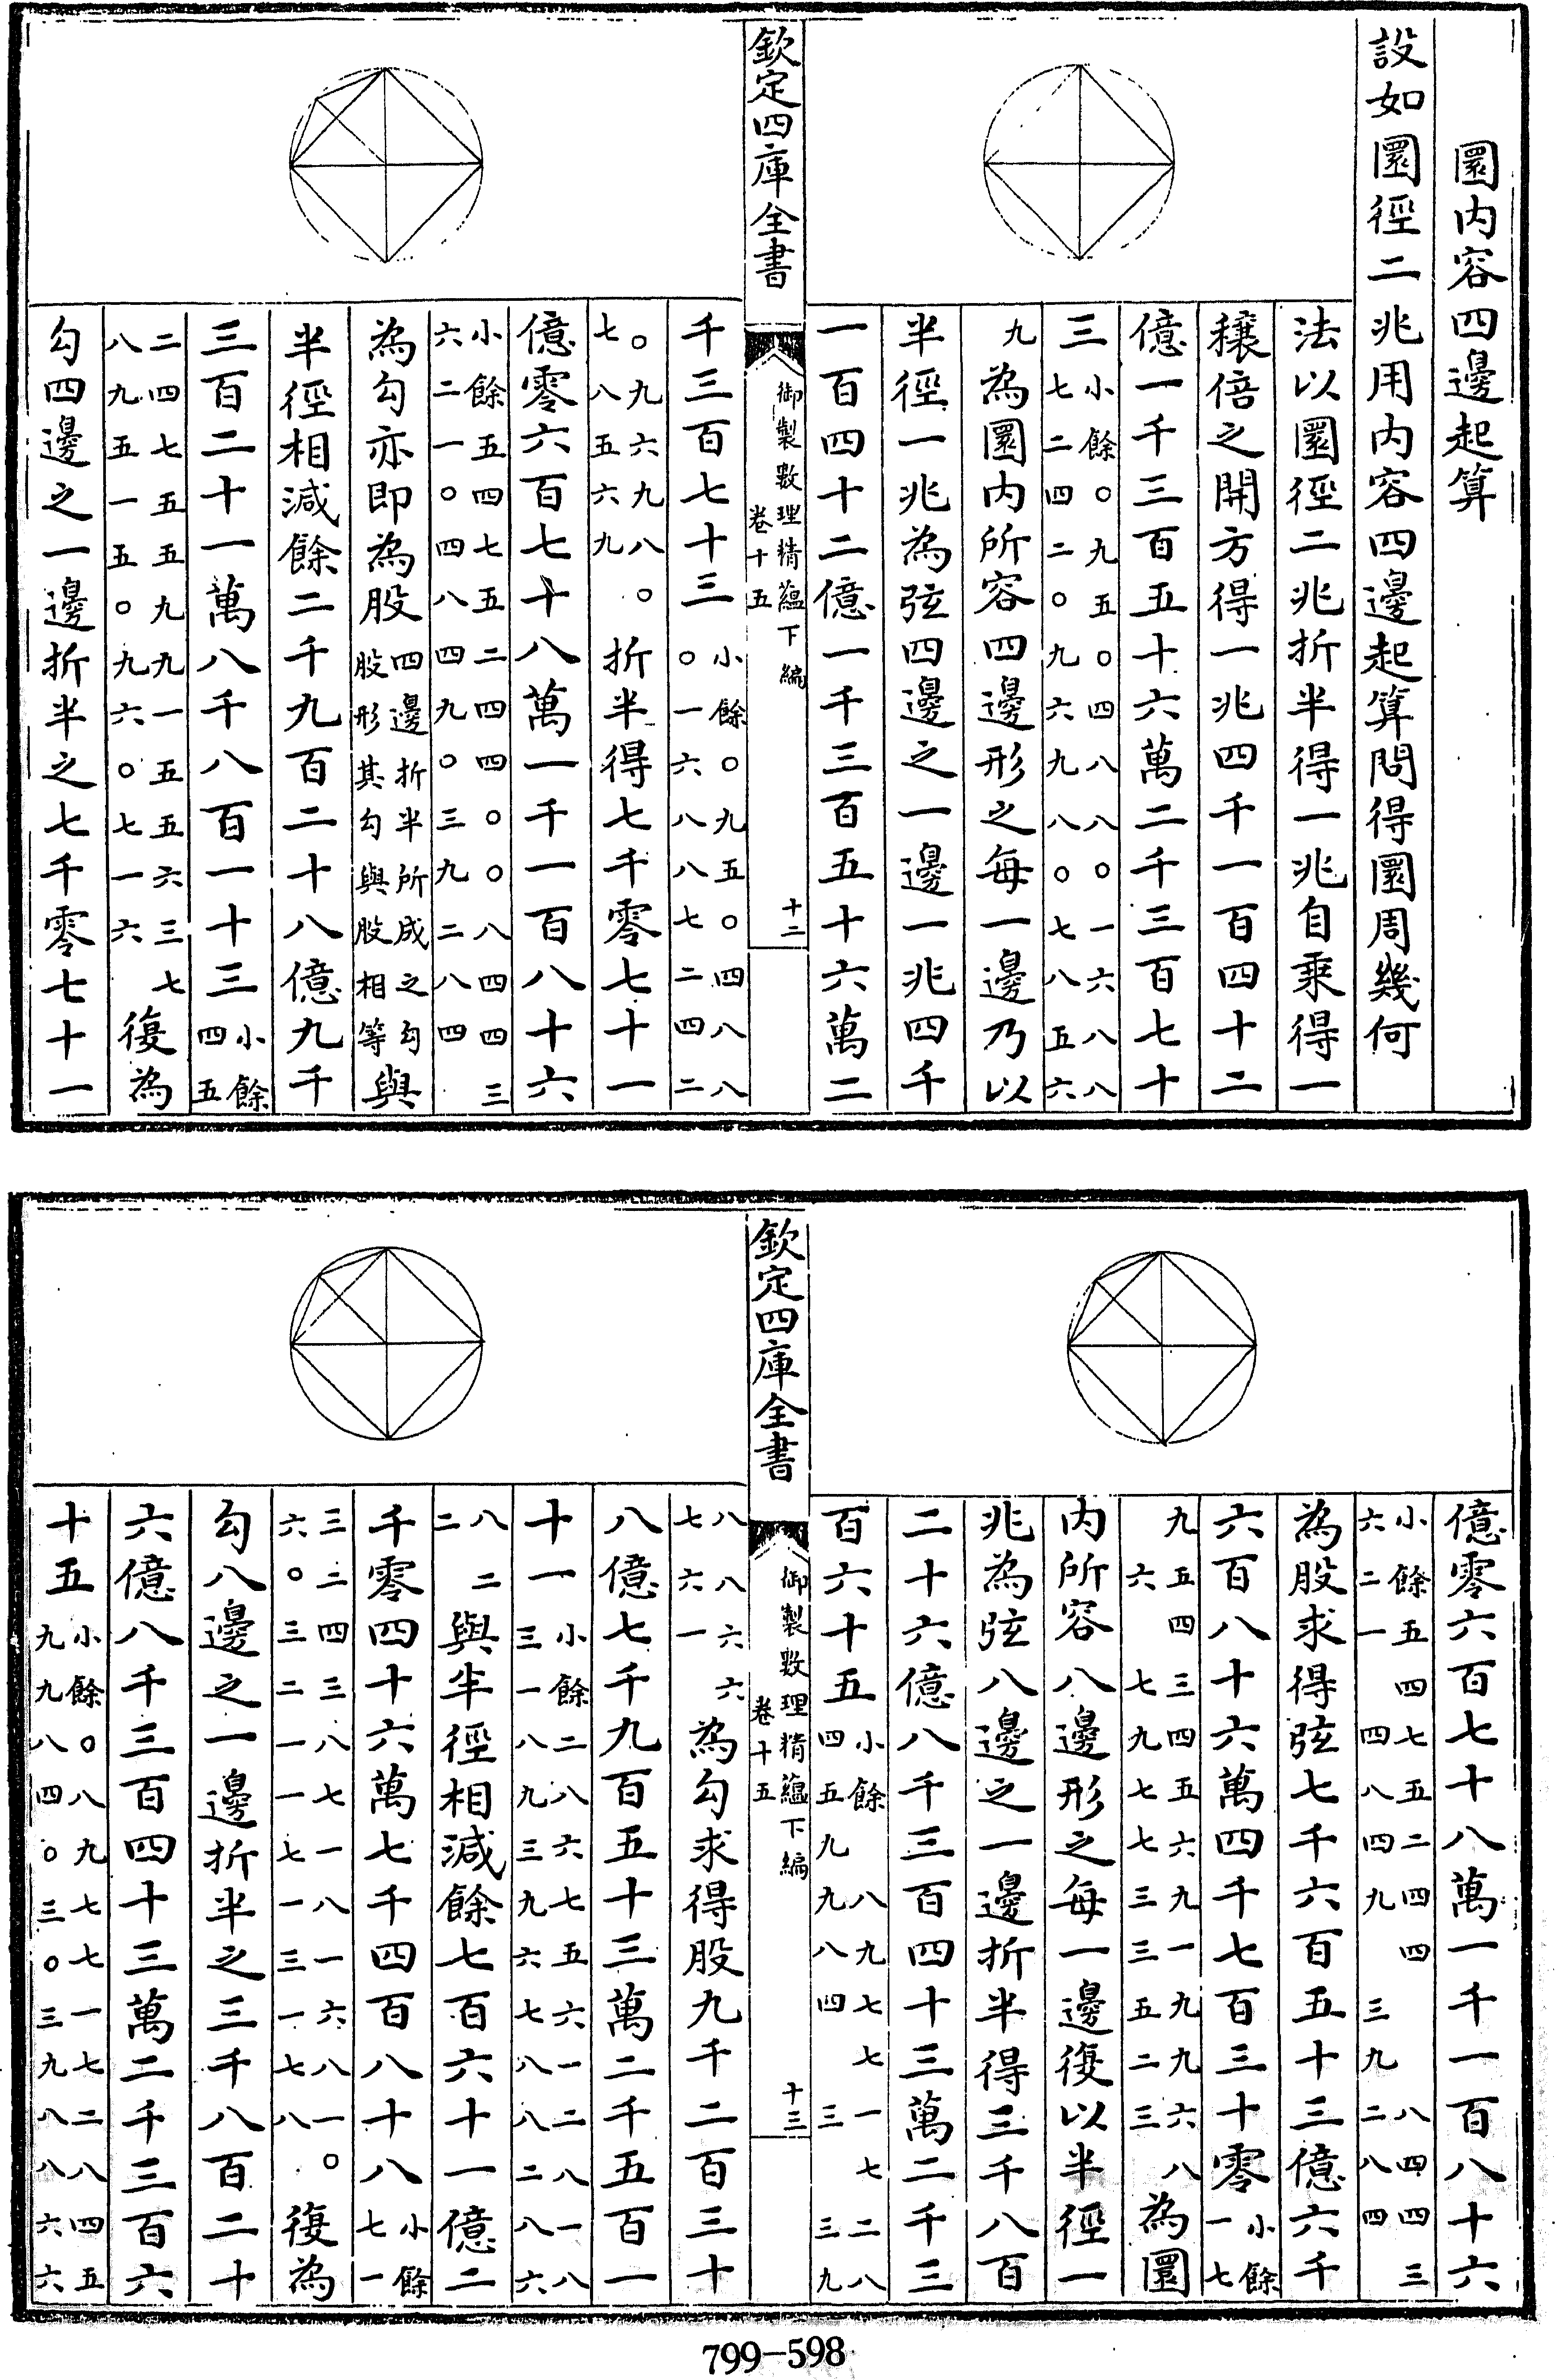 圜内容四邊起算
設如圜徑二兆用内容四邊起算問得圜周幾何
法以圜徑二兆折半得一兆自乘得一
穰倍之開方得一兆四千一百四十二
億一千三百五十六萬二千三百七十
三小餘〇九五〇四八八〇一六八八七二四二〇九六九八〇七八五六
九為圜内所容四邊形之每一邊乃以
半徑一兆為弦四邊之一邊一兆四千
一百四十二億一千三百五十六萬二
欽定四庫全書
御製數理精蘊下編
卷十五
十二
千三百七十三小餘〇九五〇四八八〇一六八八七二四二
〇九六九八〇七八五六九折半得七千零七十一
億零六百七十八萬一千一百八十六
小餘五四七五二四四〇〇八四四三六二一〇四八四九〇三九二八四
為勾亦即為股四邊折半所成之勾與股形其勾與股相等與
半徑相減餘二千九百二十八億九千
三百二十一萬八千八百一十三小餘四五
二四七五五九九一五五六三七八九五一五〇九六〇七一六復為
勾四邊之一邊折半之七千零七十一
億零六百七十八萬一千一百八十六
小餘五四七五二四四八四四三六二一四八四九三九二八四
為股求得弦七千六百五十三億六千
六百八十六萬四千七百三十零小餘一七
九五四三四五六九一九九六八六七九七七三三五二三為圜
内所容八邊形之每一邊復以半徑一
兆為弦八邊之一邊折半得三千八百
二十六億八千三百四十三萬二千三
百六十五小餘八九七七一七二八四五九九八四三三九
欽定四庫全書
御製數理精蘊下編
卷十五
十三
八八六六七六一為勾求得股九千二百三十
八億七千九百五十三萬二千五百一
十一小餘二八六七五六一二八一八三一八九三九六七八八二八六
八二二與半徑相減餘七百六十一億二
千零四十六萬七千四百八十八小餘七一
三二四三八七一八一六八一〇六〇三二一一七一三一七八復為
勾八邊之一邊折半之三千八百二十
六億八千三百四十三萬二千三百六
十五小餘〇八九七七一七二八四五九九八四〇三〇三九八八六六
799-598